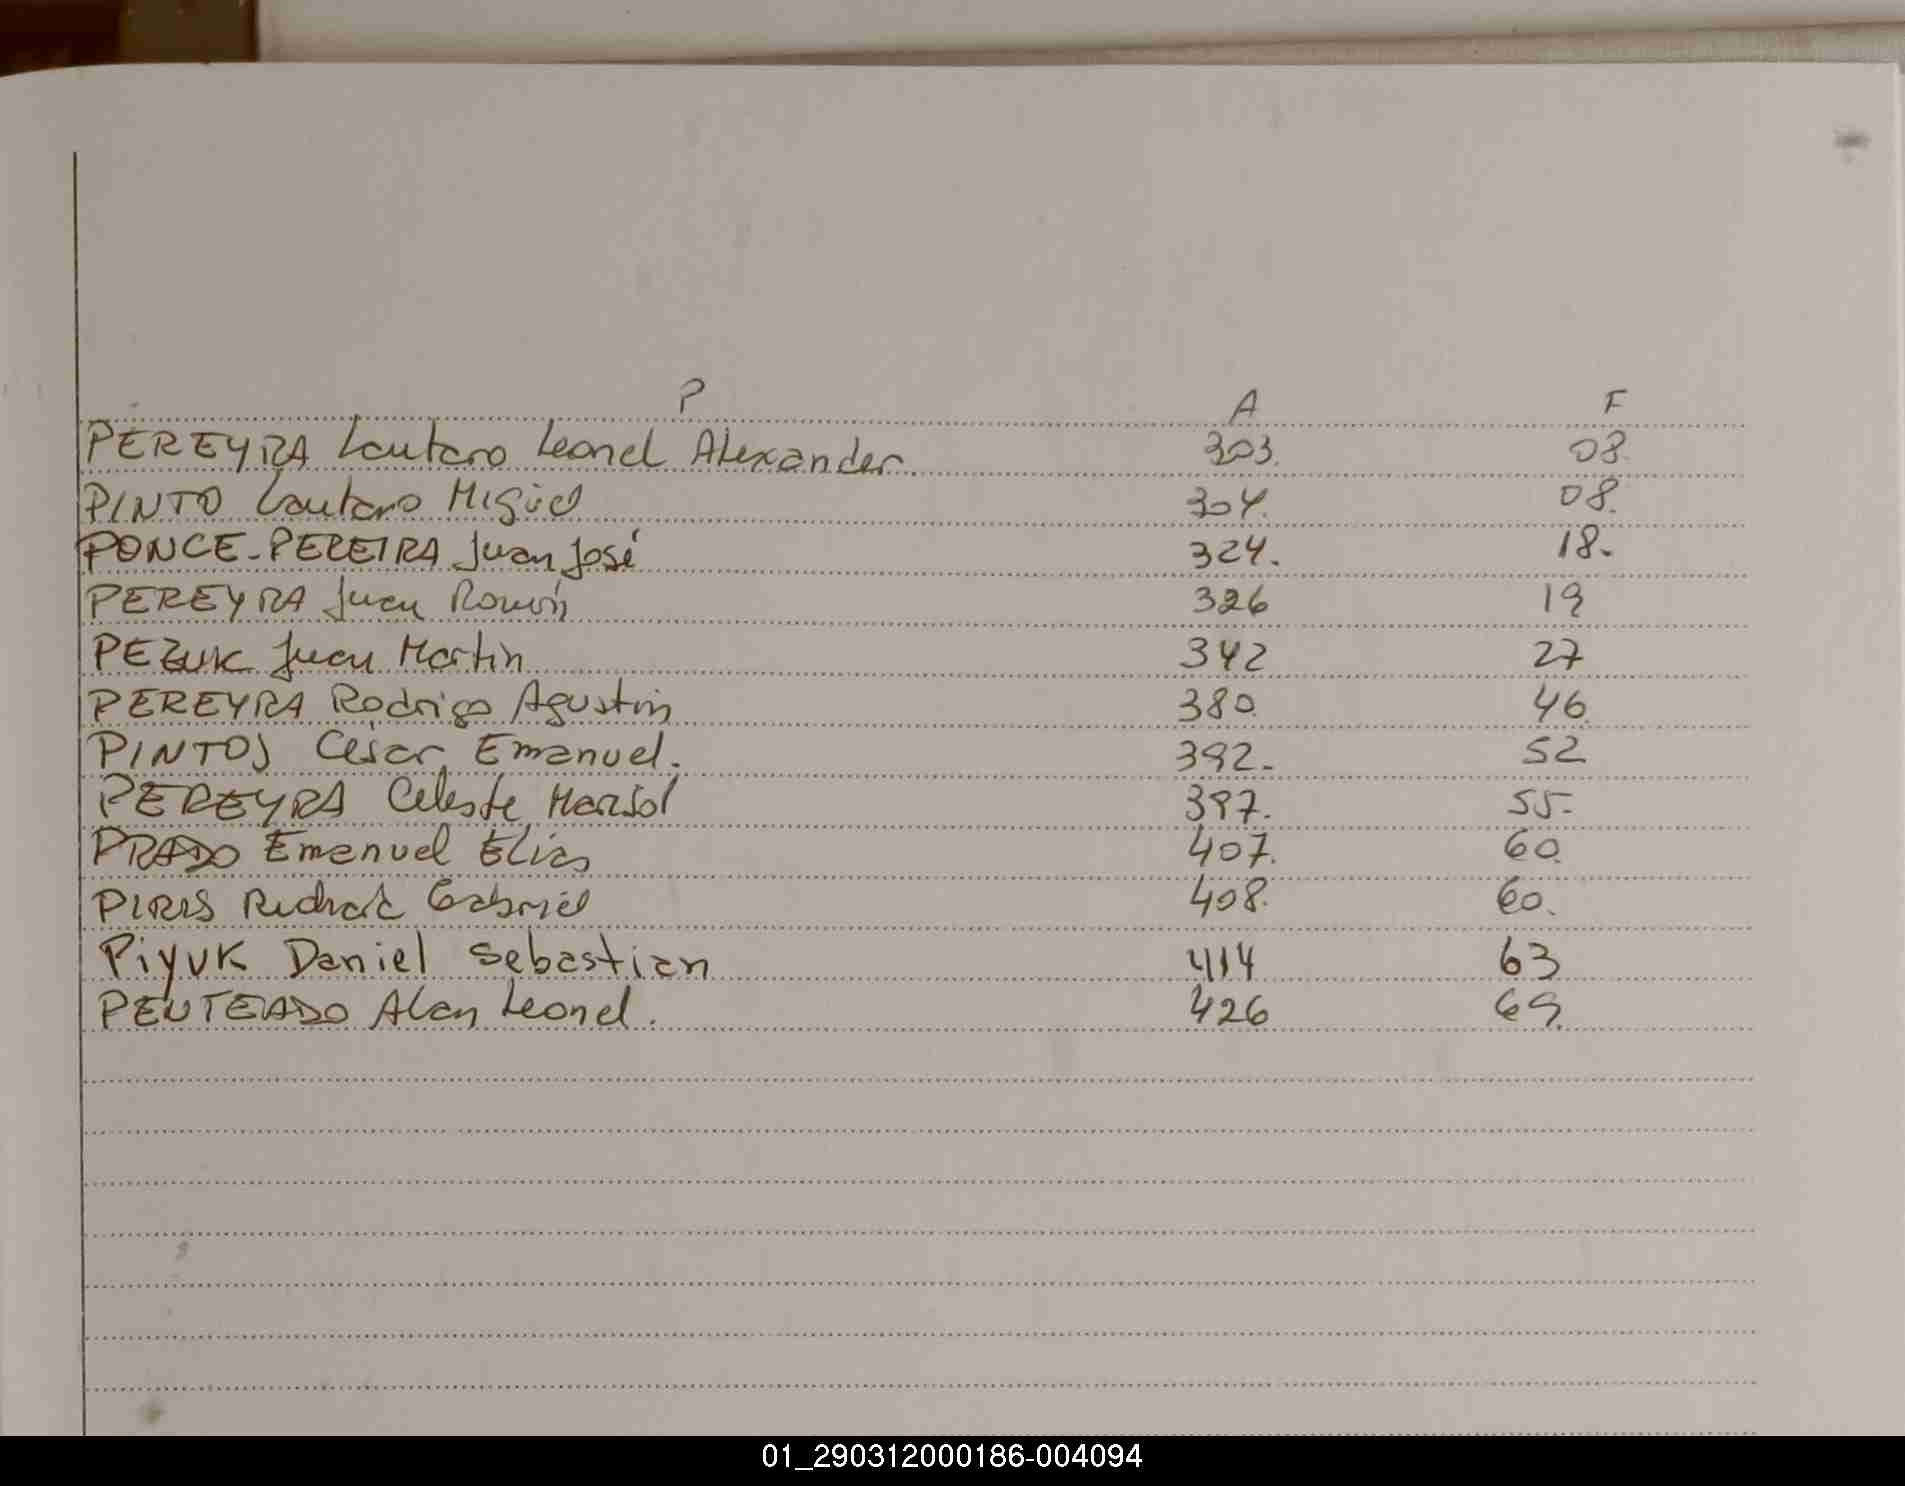 P A F
PEREYRA Lautaro Leonel Alexander. 303. 08.
PINTO Lautaro Miguel 304. 08.
PONCE-PEREIRA Juan José 324. 18.
PEREYRA Juan Román 326 19
PEZUK Juan Martin 342 27
PEREYRA Rodrigo Agustín 380. 46.
PINTOS César Emanuel. 392. 52
PEREYRA Celeste Marisol 397. 55.
PRADO Emanuel Elias 407. 60.
PIRIS Gabriel 408. 60.
Piyuk Daniel Sebastian 414 63
PENTEADO Alan Leonel. 426 69.
01_290312000186-004094